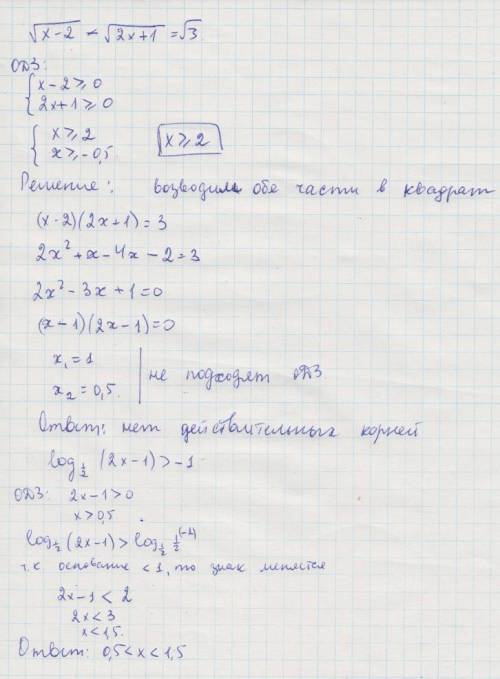 √x-2 - √2x+1 = √3
ОДЗ:
{ x-2 ≥ 0
2x+1 ≥ 0
{ x ≥ 2
x ≥ -0,5
x ≥ 2
Решение: возводим обе части в квадрат
(x-2)(2x+1)=3
2x²+x-4x-2=3
2x²-3x+1=0
(x-1)(2x-1)=0
x₁=1
x₂=0,5.
не подходят ОДЗ
Ответ: нет действительных корней
log₁/₂ (2x-1)>-1
ОДЗ: 2x-1>0
x>0,5
log₁/₂ (2x-1) > log₁/₂ ½⁽⁻¹⁾
т.к основание <1, то знак меняется
2x-1<2
2x<3
x<1,5.
Ответ: 0,5<x<1,5